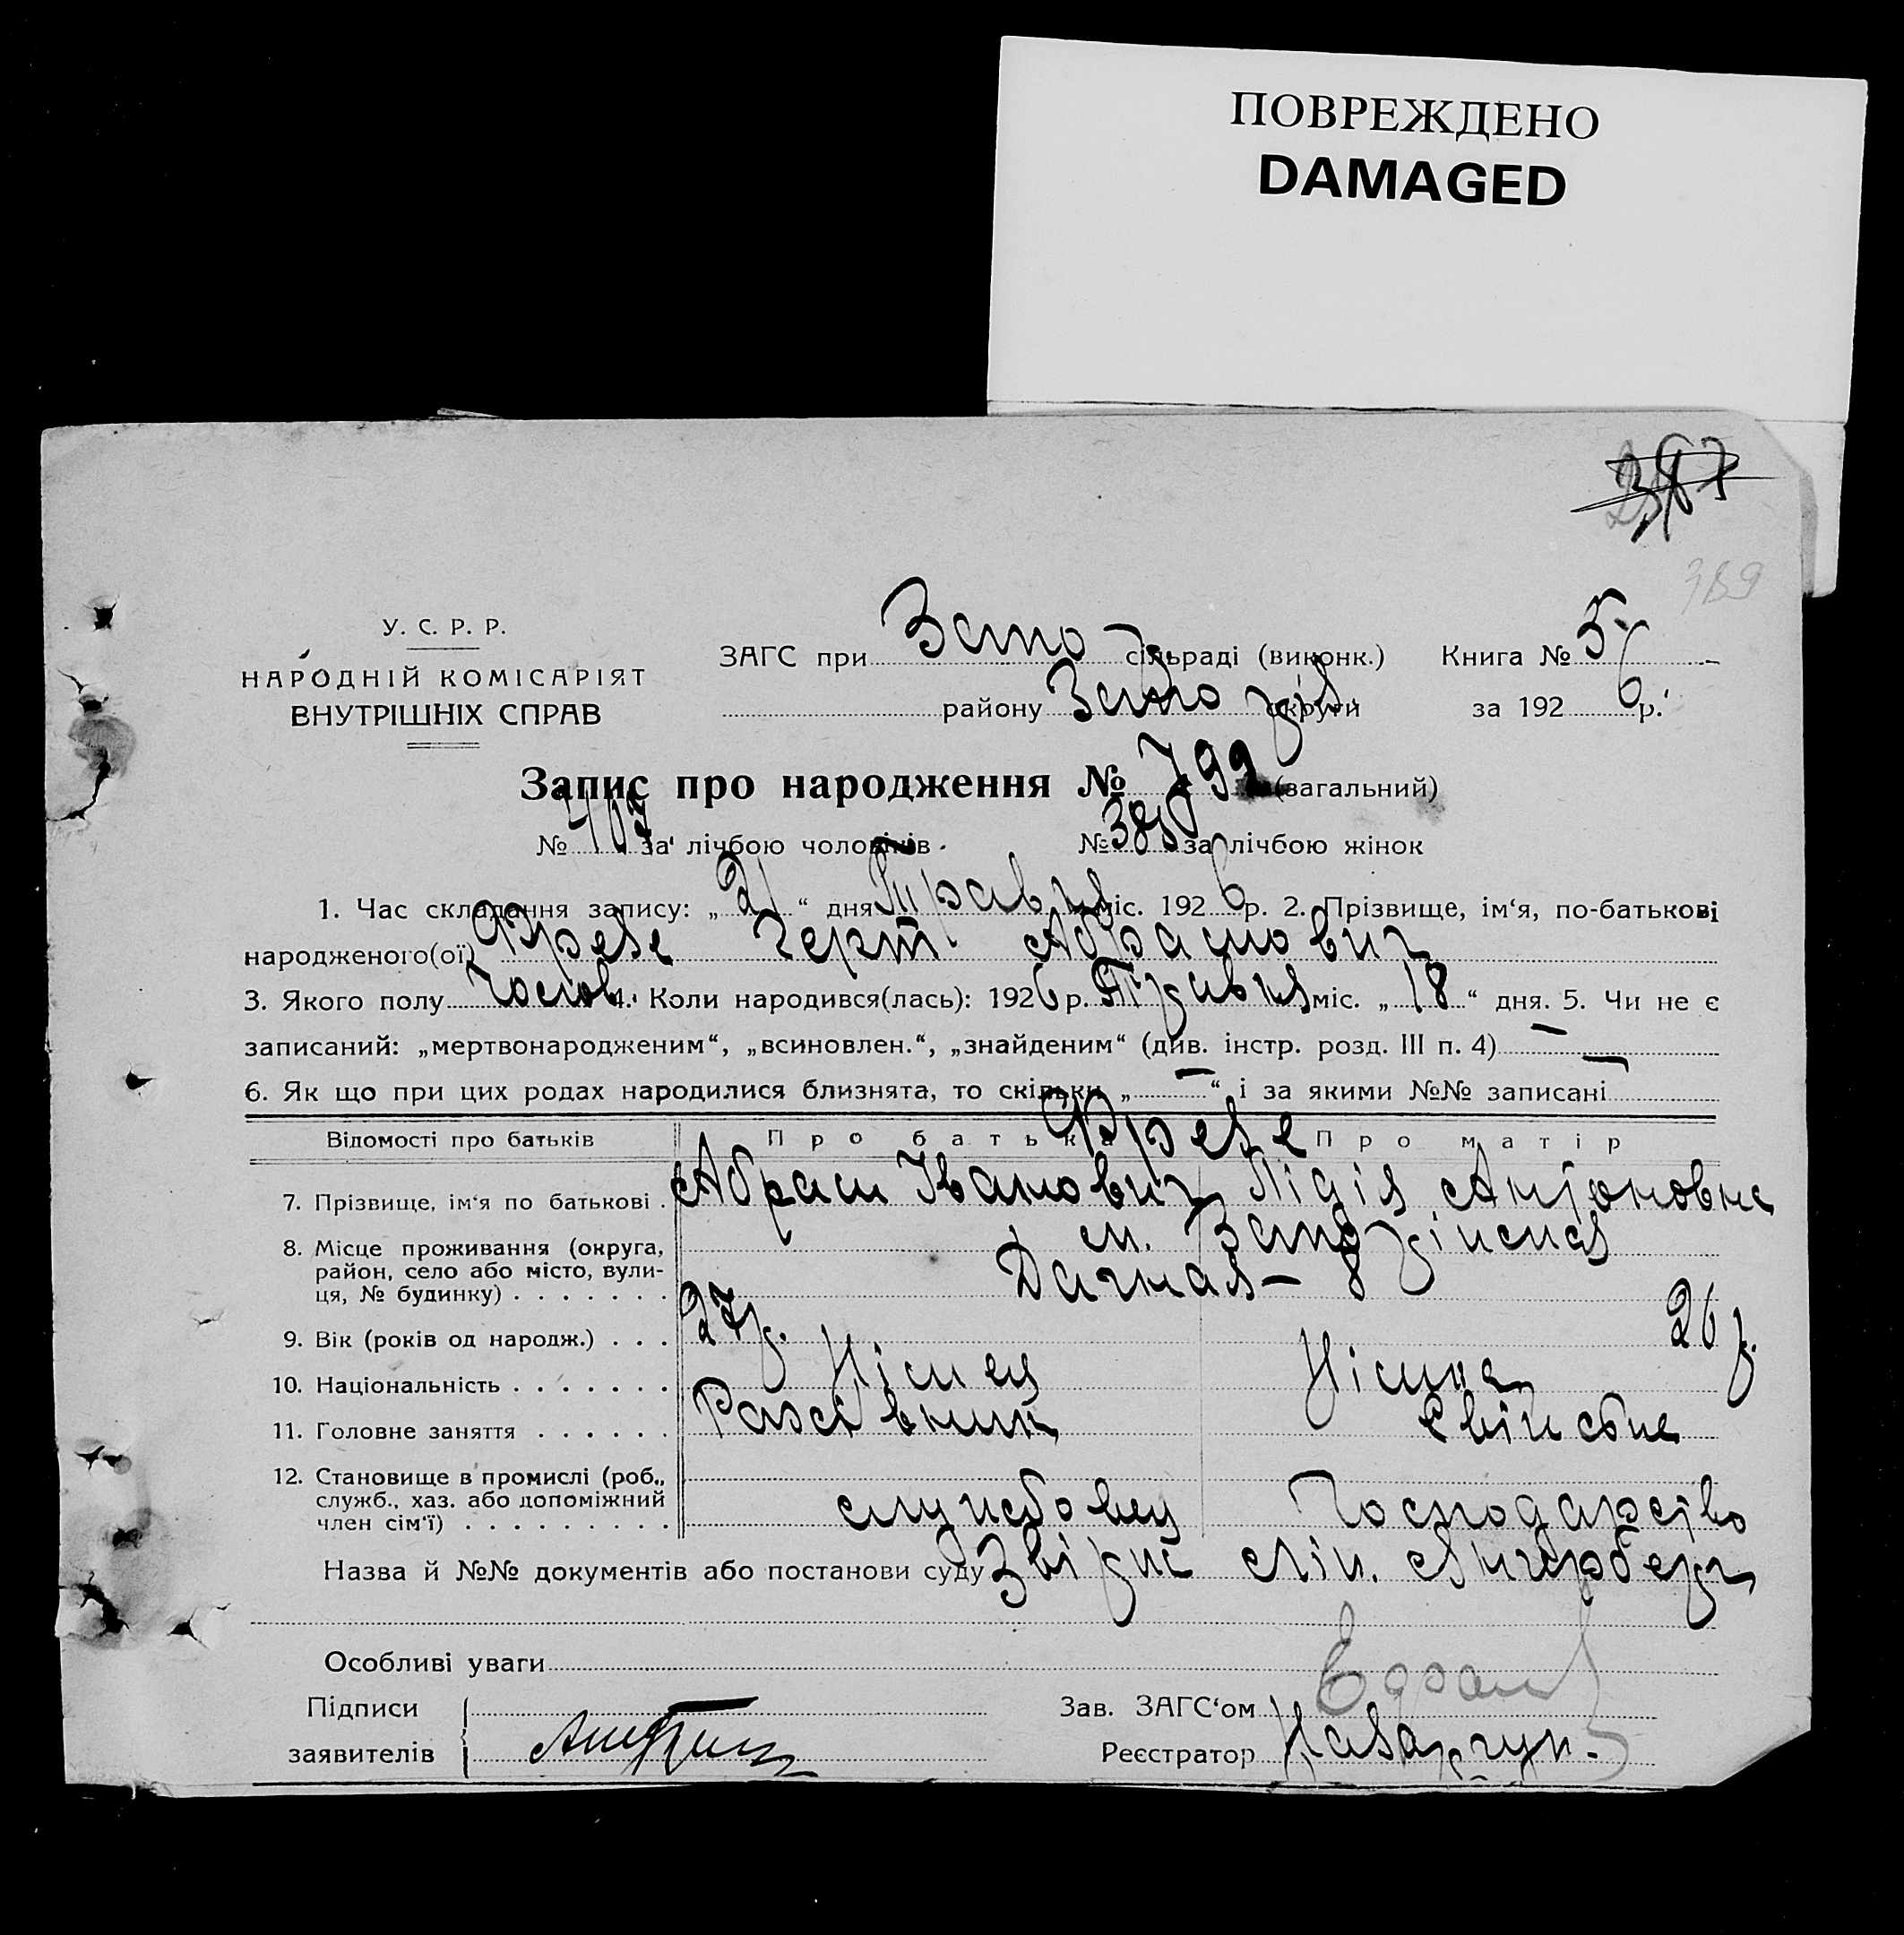 ПОВРЕЖДЕНО
DAMAGED
389
У. С. Р. Р.
НАРОДНІЙ КОМІСАРІЯТ
ВНУТРІШНІХ СПРАВ
ЗАГС при Запо сільраді (виконк.) Книга № 5
району Запоріз. округи за 1926 р.
Запис про народження № 792 (загальний)
№ 407 за лічбою чоловіків № 385 за лічбою жінок
1. Час складання запису: „21“ дня Травня міс. 1926 р. 2. Прізвище, ім‘я, по-батькові
народженого(ої) Фрезе Герт Абрамович
3. Якого полу Чолов. 4. Коли народився(лась): 1926 р. Травня міс. „18“ дня. 5. Чи не є
записаний: „мертвонародженим“, „всиновлен.“, „знайденим“ (див. інстр. розд. III п. 4) —
6. Як що при цих родах народилися близнята, то скільки „—“ і за якими №№ записані —
Відомості про батьків Про батька Про матір
Фрезе
7. Прізвище, ім‘я по батькові . Абрам Іванович Лідія Антоновна
8. Місце проживання (округа, район, село або місто, вулиця, № будинку) . . . . . . . м. Запоріжжя
Дачная — 8
9. Вік (років од народж.) . . . 27 р. 26 р.
10. Національність . . . . . . . Німец Німка
11. Головне заняття . . . . . . Свійське
12. Становище в промислі (роб., служб., хаз. або допоміжний член сім‘ї) . . . . . . . . . службовец Господарство
Назва й №№ документів або постанови суду Звірка Лік.
Особливі уваги
Підписи
заявителів
Зав. ЗАГС‘ом
Реєстратор Назарчук